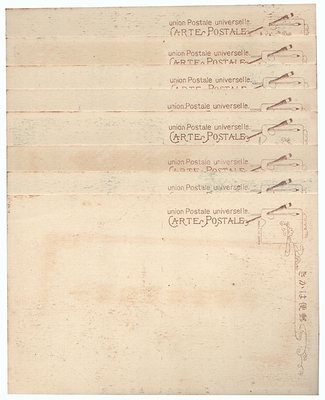 union Postale universelle.
CARTE POSTALE
union Postale universelle.
CARTE POSTALE
union Postale universelle.
CARTE POSTALE
union Postale universelle.
union Postale universelle.
CARTE POSTALE
union Postale universelle.
CARTE POSTALE
union Postale universelle.
union Postale universelle.
CARTE POSTALE
きかは便郵